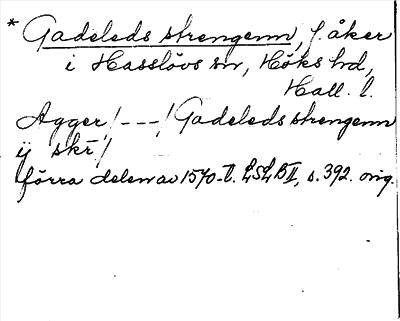 * Gadeleds strengenn, f. åker
i Hasslövs sn, Höks hd,
Hall. l.
Agger /---/ Gadeleds strengenn
ij skr̄ /
förra delen av 1570-t. LSLB II, s. 392. orig.